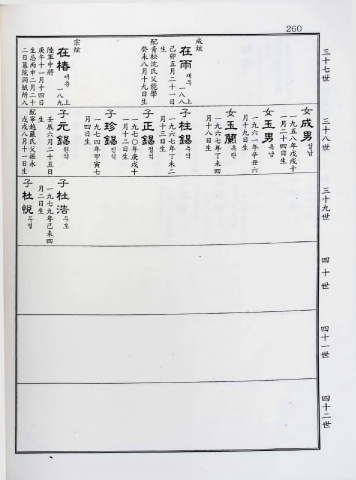 260
三十七世
三十八世
三十九世
四十世
四十一世
四十二世
成鉉
在雨 재우 一八八上
己卯五月二十一日生
配青松沈氏父能學
癸未八月十九日生
宗鉉
在椿 재춘 一八九上
陸軍中將
庚午十一月十四日
生忌丙申二月二十
二日墓院洞紙所八
女成男 성남
一九五八年戊戌十
一月二十四日生
女玉男 옥남
一九六一年辛丑六
月六日生
女玉蘭 옥란
一九六七年丁未四
月十八日生
子柱錫 주석
一九六七年丁未二
月十三日生
子正錫 정석
一九七〇年庚戌十
一月十二日生
子珍錫 진석
一九七四年甲寅七
月四日生
子元錫 원석
壬辰六月二十五日
生
配寧越嚴氏父振永
戊戌八月十一日生
子杜浩 두호
一九七九年己未四
月二日生
子杜悅 두열